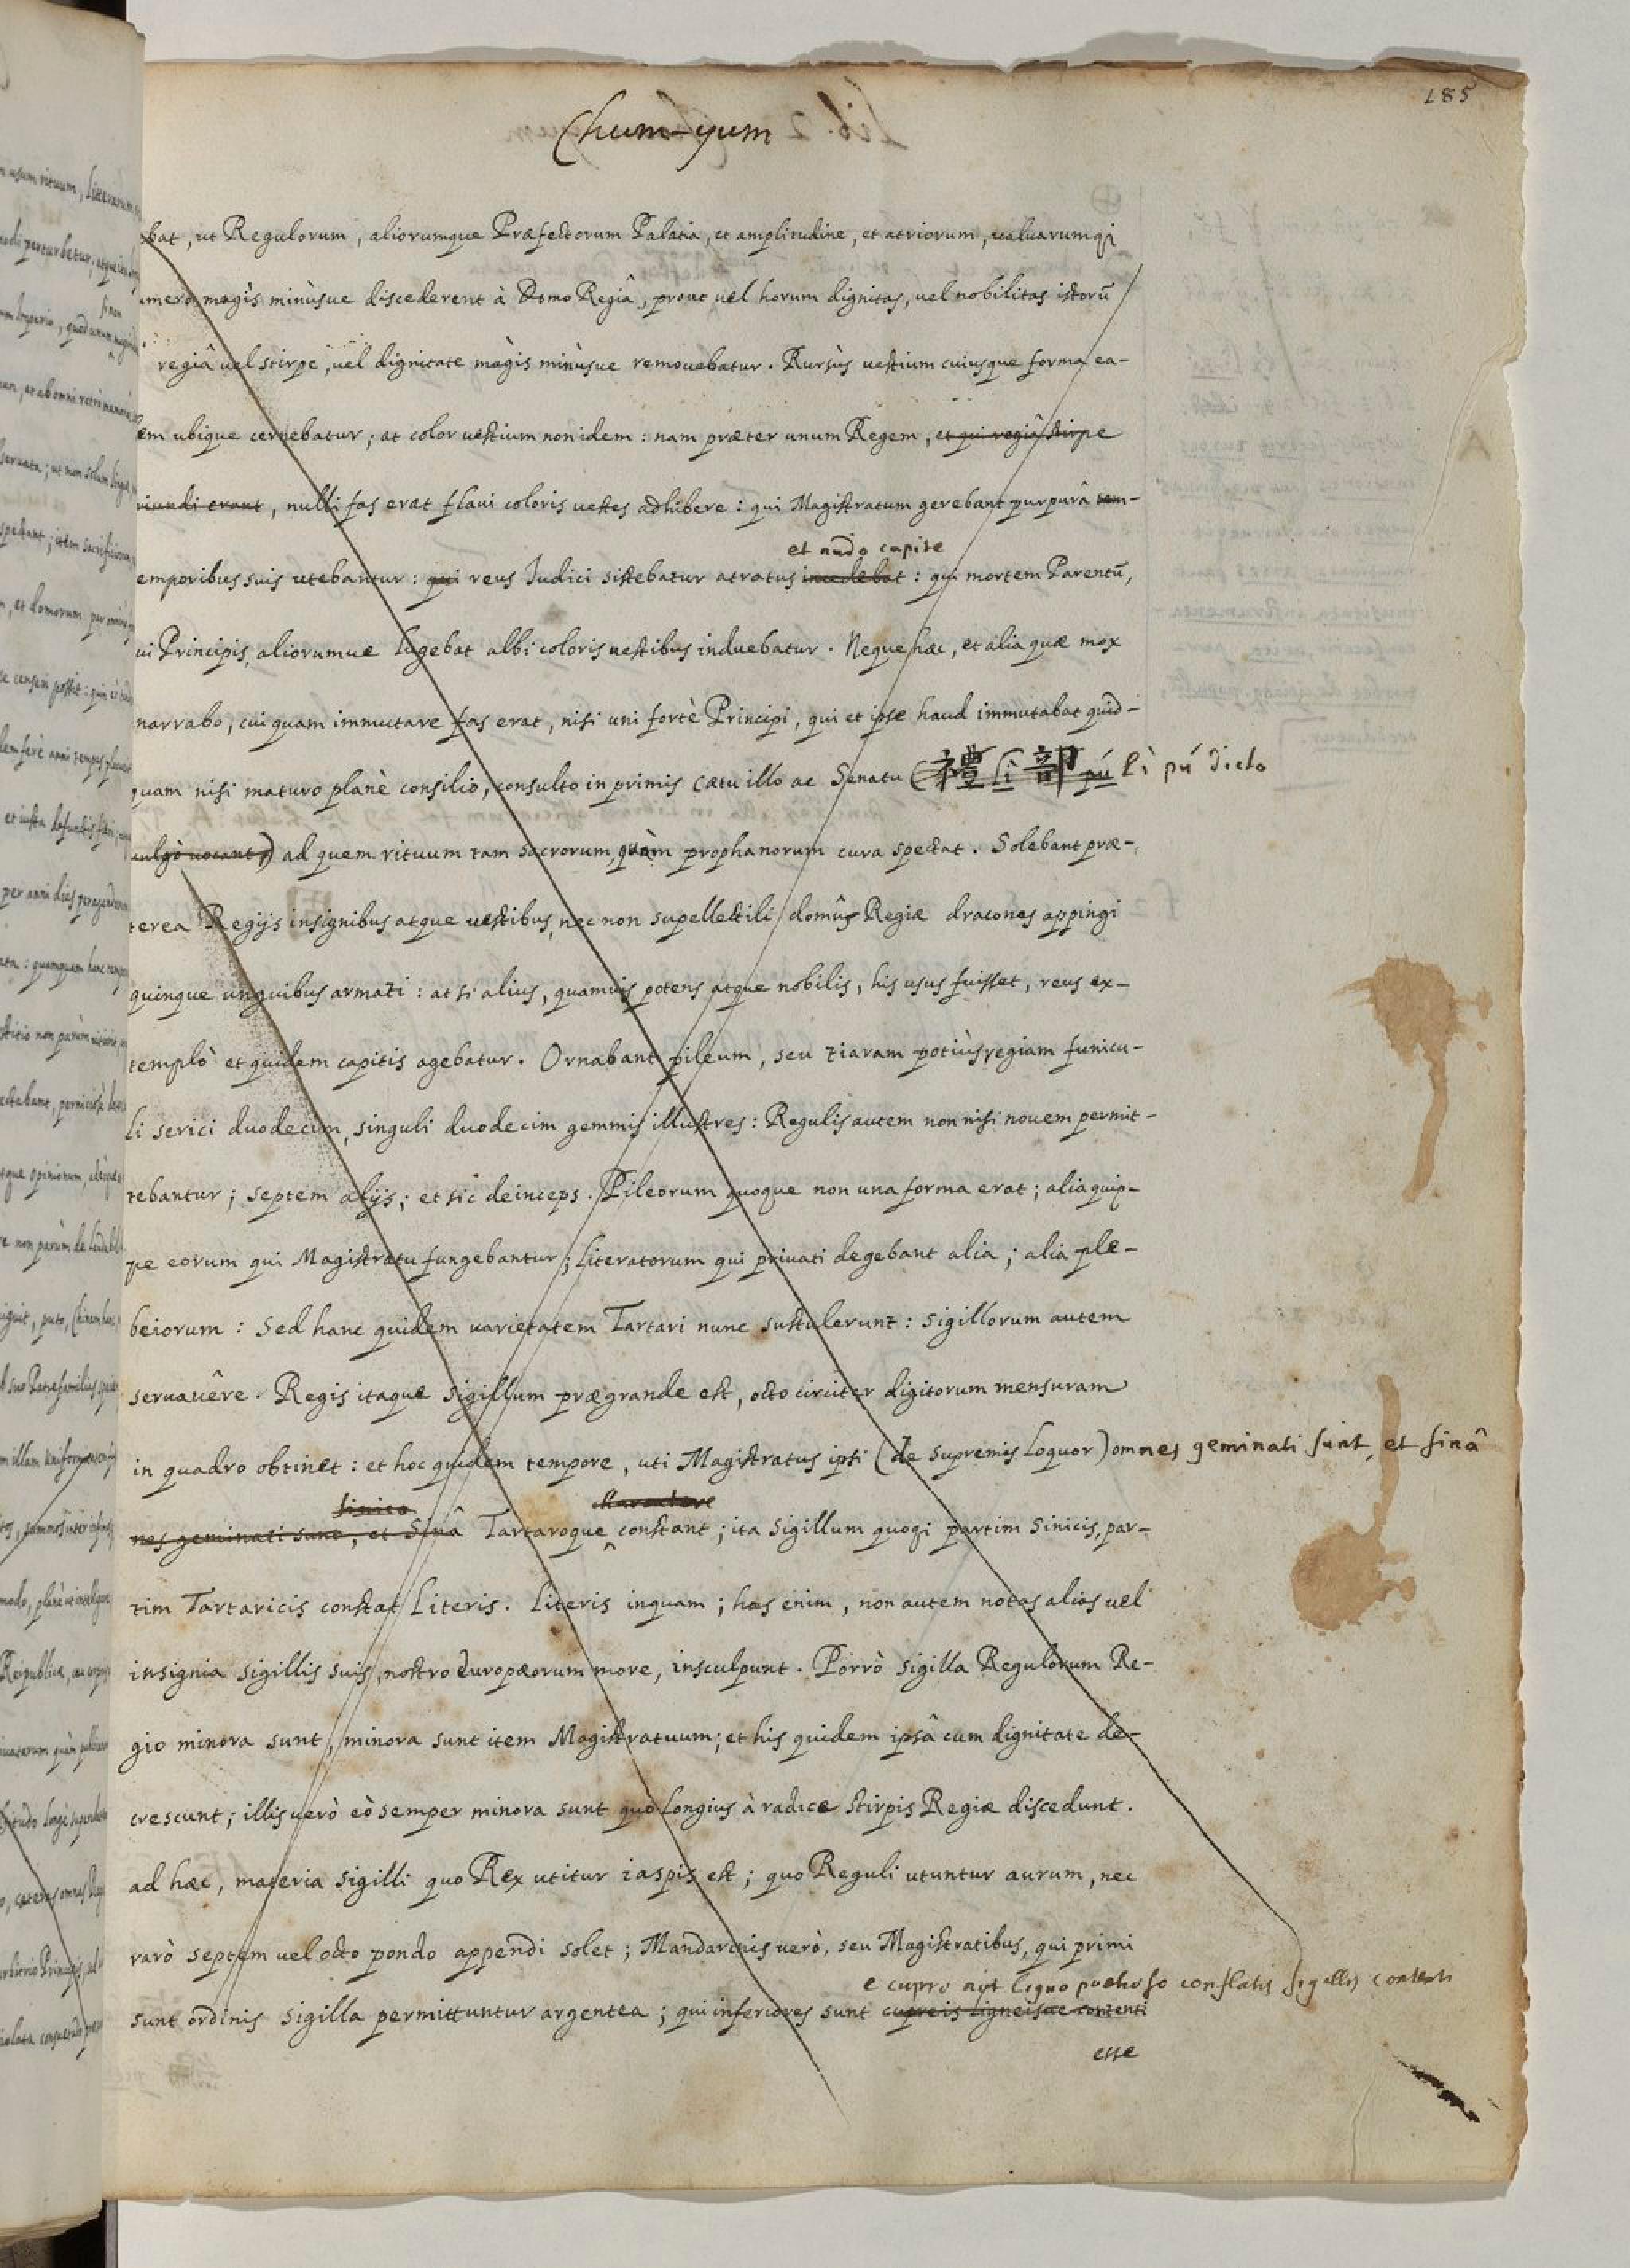 185
Chum-yum
bat, ut Regulorum, aliorumque Præfectorum Palatia, et amplitudine, et atriorum, valuarumqȝ
umero magis minùsue discederent à Domo Regiâ, prout uel horum dignitas, uel nobilitas istorũ
regiâ uel stirpe, uel dignitate màgis minùsue remouebatur. Rursùs uestium cuiusque forma ea-
em ubique cernebatur; at color uestium non idem: nam præter unum Regem, et qui regiâ stirpe
riundi erant, nulli fas erat flaui coloris uestes adhibere: qui Magistratum gerebant purpurâ tem-
et nudo capite
emporibus suis utebantur: qui reus Iudici sistebatur atratus incedebat: qui mortem Parentũ,
ui Principis, aliorumue lugebat albi coloris uestibus induebatur. Neque hæc, et alia quæ mox
narrabo, cuiquam immutare fas erat, nisi uni fortè Principi, qui et ipse haud immutabat quid-
quam nisi maturo planè consilio, consulto in primis cætu illo ac Senatu (禮 lì 部 pú lì pú dicto
uulgò uocant,) ad quem rituum tam sacrorum, quàm prophanorum cura spectat. Solebant præ-
terea Regijs insignibus atque uestibus, nec non supellectili domûs Regiæ dracones appingi
quinque unguibus armati: at si alius, quamuis potens atque nobilis, his usus fuisset, reus ex-
templò et quidem capitis agebatur. Ornabant pileum, seu tiaram potiùs regiam funicu-
li serici duodecim, singuli duodecim gemmis illustres: Regulis autem non nisi nouem permit-
tebantur; septem alijs; et sic deinceps. Pileorum quoque non una forma erat; alia quip-
pe eorum qui Magistratu fungebantur; literatorum qui priuati degebant alia; alia ple-
beiorum: Sed hanc quidem uarietatem Tartari nunc sustulerunt: sigillorum autem
seruauêre. Regis itaque sigillum prægrande est, octo circiter digitorum mensuram
in quadro obtinet: et hoc quidem tempore, uti Magistratus ipsi (de supremis loquor) omnes geminati sunt, et sinâ
sinico charactere
nes geminati sunt, et Sinâ Tartaroque constant; ita sigillum quoqȝ partim Sinicis, par-
tim Tartaricis constat Literis. Literis inquam; has enim, non autem notas alias uel
insignia sigillis suis, nostro Europæorum more, insculpunt. Porrò sigilla Regulorum Re-
gio minora sunt, minora sunt item Magistratuum; et his quidem ipsâ cum dignitate de-
crescunt; illis uerò eò semper minora sunt quo longius à radice stirpis Regiæ discedunt.
ad hæc, materia sigilli quo Rex utitur iaspis est; quo Reguli utuntur aurum, nec
rarò septem uel octo pondo appendi solet; Mandarinis uerò, seu Magistratibus, qui primi
e cupro aut ligno conflatis sigillis contenti
sunt ordinis sigilla permittuntur argentea; qui inferiores sunt cupreis ligneisue contenti
esse